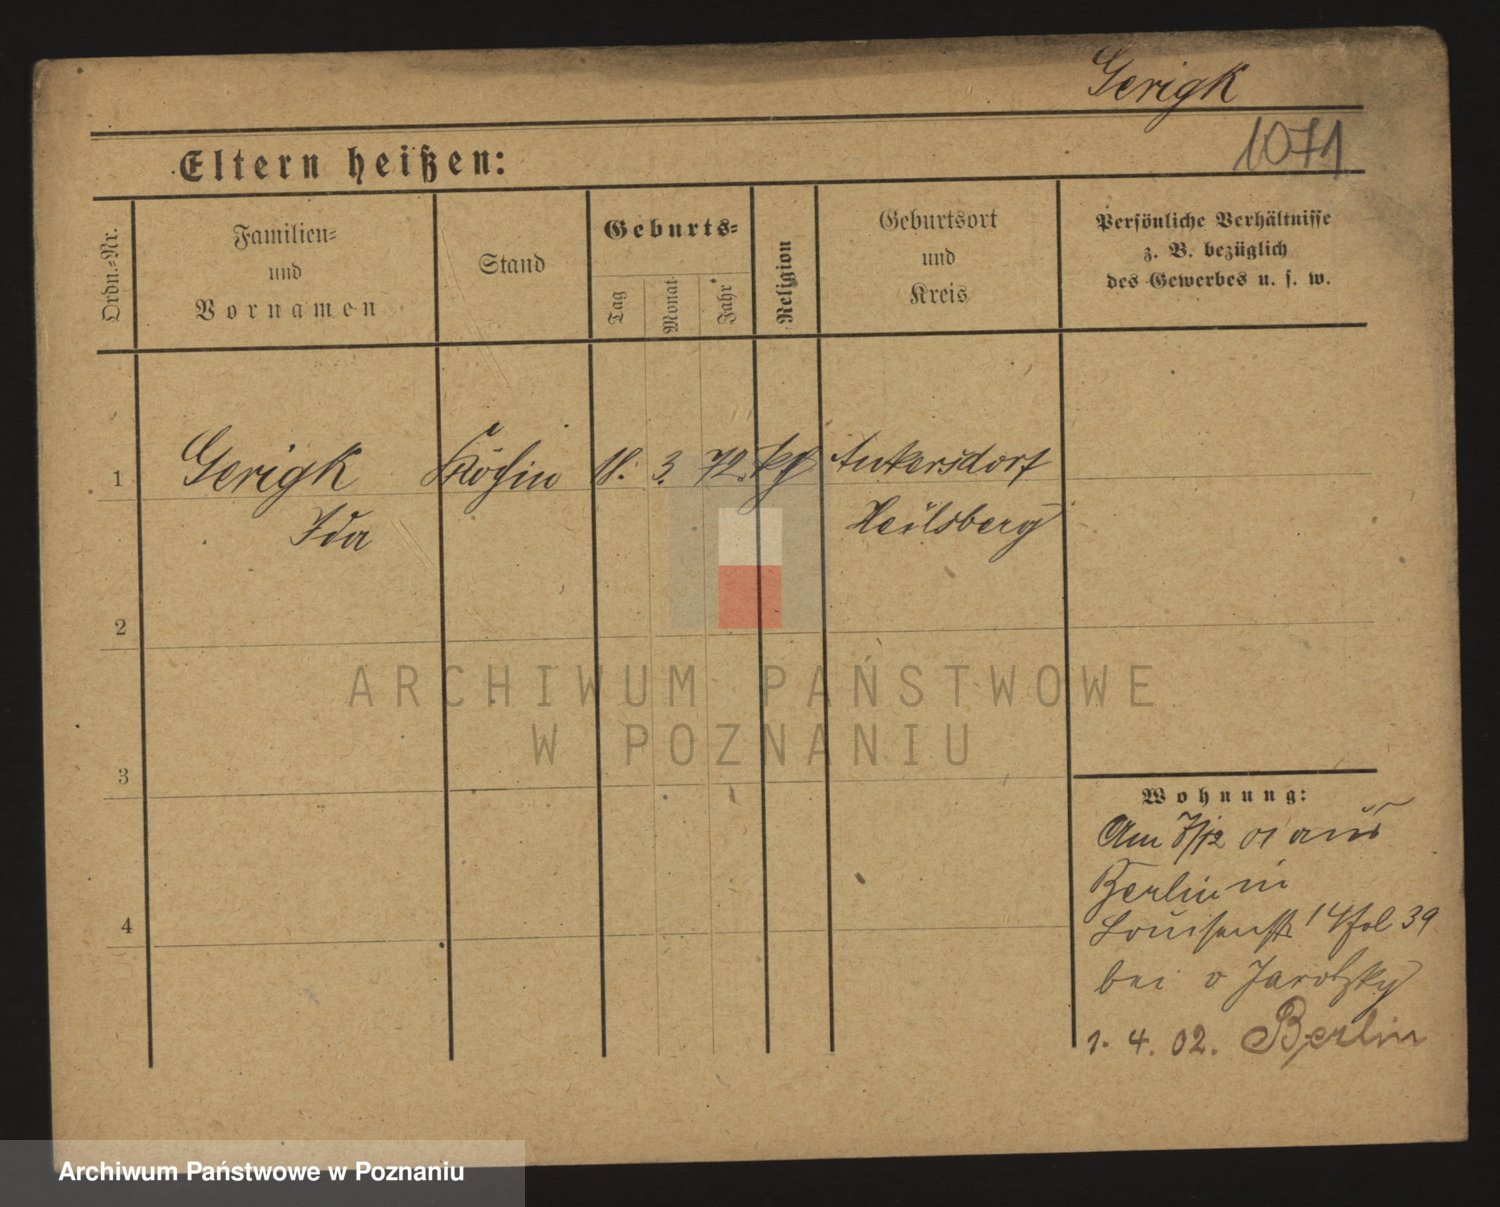 Gerigk
1071
Eltern heißen:
Ordn.-Nr.
Familien-
und
Vornamen
Stand
Geburts-
Tag
Monat
Jahr
Religion
Geburtsort
und
Kreis
Persönliche Verhältnisse
z. B. bezüglich
des Gewerbes u. s. w.
1 Gerigk Köchin 18. 3. 72. kf Ankersdorf
Ida Heilsberg
2
3
4
Wohnung:
Am 7/12 01 aus
Berlin in
Louisenstr 14 fol 39
bei v Jarotzky
1. 4. 02. Berlin
ARCHIWUM PAŃSTWOWE
W POZNANIU
Archiwum Państwowe w Poznaniu